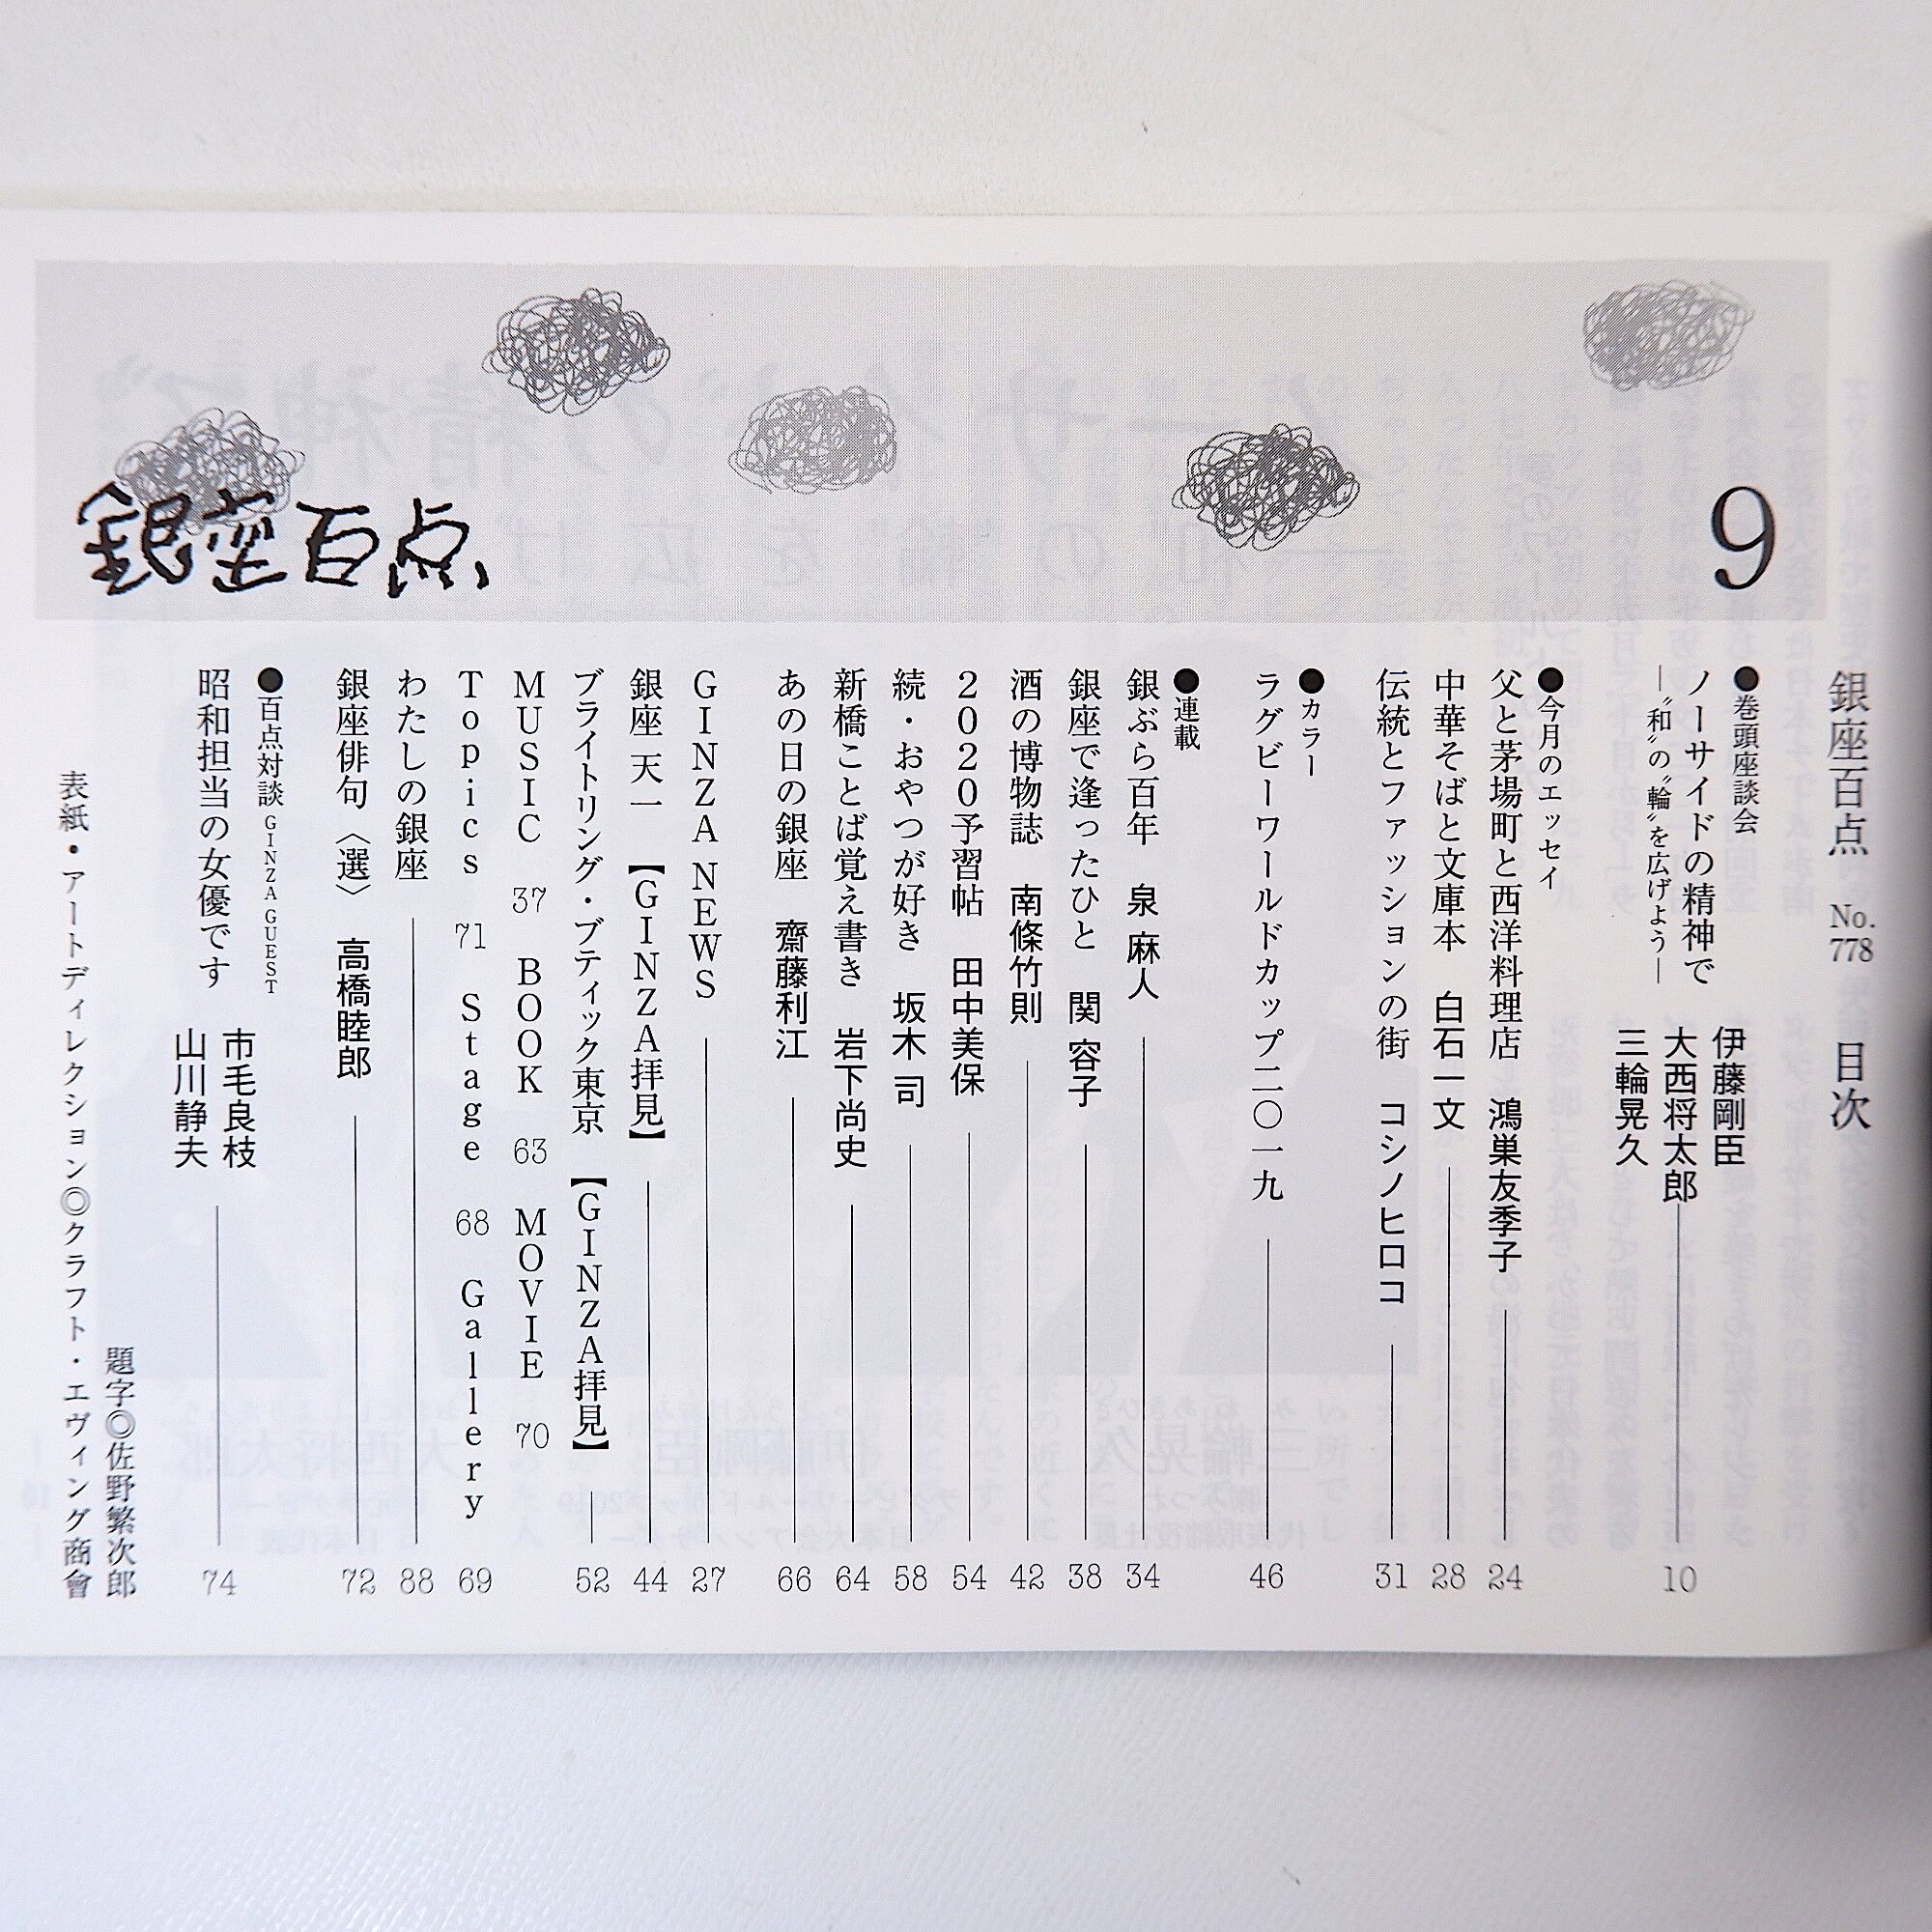 9
銀座百点
銀座百点 No.778 目次
●巻頭座談会
ノーサイドの精神で
―〝和〟の〝輪〟を広げよう―
伊藤剛臣
大西将太郎 10
三輪晃久
●今月のエッセイ
父と茅場町と西洋料理店 鴻巣友季子 24
中華そばと文庫本 白石一文 28
伝統とファッションの街 コシノヒロコ 31
●カラー
ラグビーワールドカップ二〇一九 46
●連載
銀ぶら百年 泉 麻人 34
銀座で逢ったひと 関 容子 38
酒の博物誌 南條竹則 42
2020予習帖 田中美保 54
続・おやつが好き 坂木 司 58
新橋ことば覚え書き 岩下尚史 64
あの日の銀座 齋藤利江 66
GINZA NEWS 27
銀座 天一 【GINZA拝見】 44
ブライトリング・ブティック東京 【GINZA拝見】 52
MUSIC 37 BOOK 63 MOVIE 70
Topics 71 Stage 68 Gallery 69
わたしの銀座 88
銀座俳句〈選〉 高橋睦郎 72
●百点対談 GINZA GUEST
昭和担当の女優です
市毛良枝
山川静夫 74
題字◎佐野繁次郎
表紙・アートディレクション◎クラフト・エヴィング商會